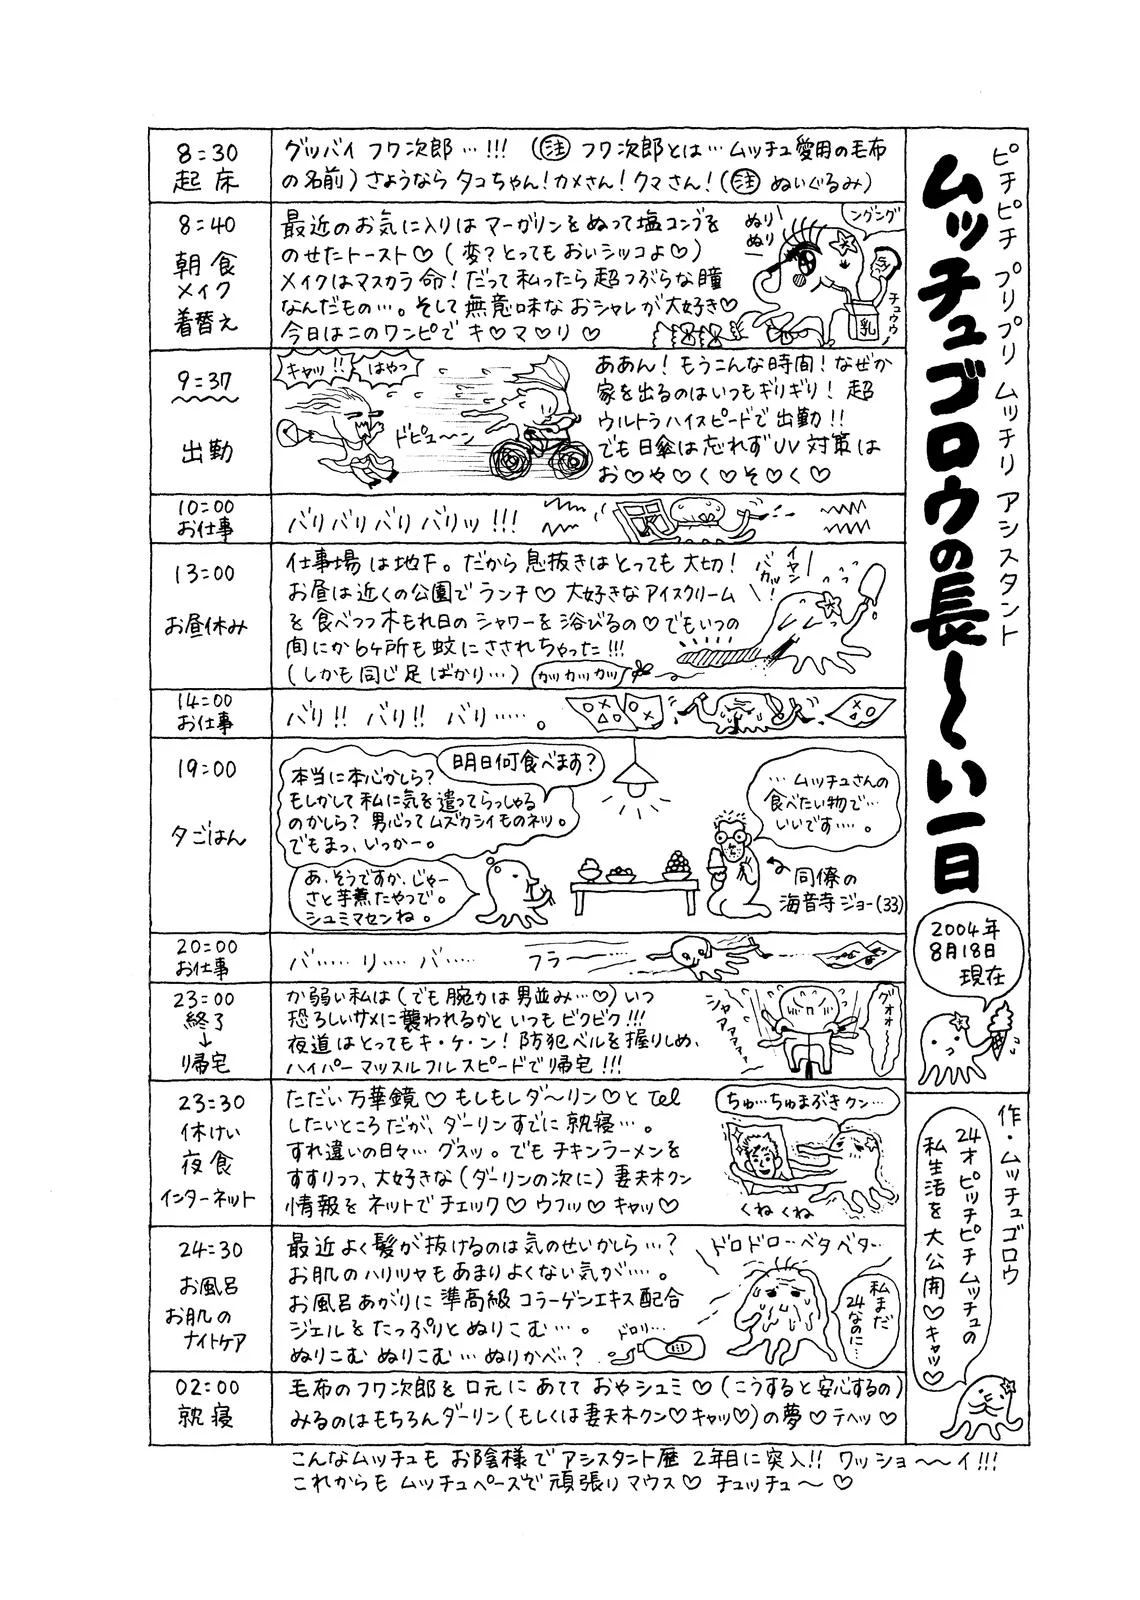 ピチピチ プリプリ ムッチリ アシスタント
ムッチュゴロウの長〜い一日
2004年
8月18日
現在
作・ムッチュゴロウ
24才 ピッチピチムッチュの
私生活を大公開♡キャッ♡
8:30
起床
グッバイ フワ次郎…!!! (注 フワ次郎とは…ムッチュ愛用の毛布
の名前) さようなら タコちゃん! カメさん! クマさん! (注 ぬいぐるみ)
8:40
朝食
メイク
着替え
最近のお気に入りは マーガリンをぬって塩コンブを
のせたトースト♡ (変? とっても おいシッコよ♡)
メイクはマスカラ命! だって私ったら超つぶらな瞳
なんだもの…。そして無意味なおシャレが大好き♡
今日はこのワンピで キ♡マ♡リ♡
ぬり
ぬり
ングング
チュウウ
乳
9:37
出勤
キャッ!!
はやっ
ドピューン
ああん! もうこんな時間! なぜか
家を出るのはいつもギリギリ! 超
ウルトラハイスピードで出勤!!
でも日傘は忘れずUV対策は
お♡や♡く♡そ♡く♡
10:00
お仕事
バリバリバリバリッ!!!
13:00
お昼休み
仕事場は地下。だから息抜きはとっても大切!
お昼は近くの公園でランチ♡ 大好きなアイスクリーム
を食べつつ木もれ日のシャワーを浴びるの♡でもいつの
間にか6ヶ所も蚊にさされちゃった!!!
(しかも同じ足ばかり…)
カッカッカッ
イヤン
バカッ
14:00
お仕事
バリ!! バリ!! バリ……。
19:00
夕ごはん
明日何食べます?
本当に本心かしら?
もしかして私に気を遣ってらっしゃる
のかしら? 男心ってムズカシイものネッ。
でもまっ、いっかー。
あ、そうですか、じゃー
さと芋煮たやつで。
シュミマセンね。
…ムッチュさんの
食べたい物で…
いいです…。
同僚の
海音寺ジョー(33)
20:00
お仕事
バ…… リ… バ……
フラ〜
23:00
終了
↓
帰宅
か弱い私は (でも腕力は男並み…♡) いつ
恐ろしいサメに襲われるかと いつもビクビク!!!
夜道はとってもキ・ケ・ン! 防犯ベルを握りしめ、
ハイパーマッスルフルスピードで帰宅!!!
シャアアアァ
グオオ〜
23:30
休けい
夜食
インターネット
ただい万華鏡♡ もしもしダ〜リン♡とtel
したいところだが、ダーリンすでに就寝…。
すれ違いの日々… グスッ。でもチキンラーメンを
すすりつつ、大好きな (ダーリンの次に) 妻夫木クン
情報をネットでチェック♡ ウフッ♡ キャッ♡
ちゅ…ちゅまぶきクン…
くね くね
24:30
お風呂
お肌の
ナイトケア
最近よく髪が抜けるのは気のせいかしら…?
お肌のハリツヤもあまりよくない気が…。
お風呂あがりに準高級コラーゲンエキス配合
ジェルをたっぷりとぬりこむ…。
ぬりこむ ぬりこむ… ぬりかべ…?
ドロドロ…ベタベター
ドロリ…
私まだ
24なのに…
02:00
就寝
毛布のフワ次郎を口元にあてて おやシュミ♡ (こうすると安心するの)
みるのはもちろんダーリン(もしくは妻夫木クン♡キャッ♡)の夢♡テヘッ♡
こんなムッチュも お陰様で アシスタント歴 2年目に突入!! ワッショ〜〜イ!!!
これからも ムッチュペースで頑張りマウス♡ チュッチュ〜♡